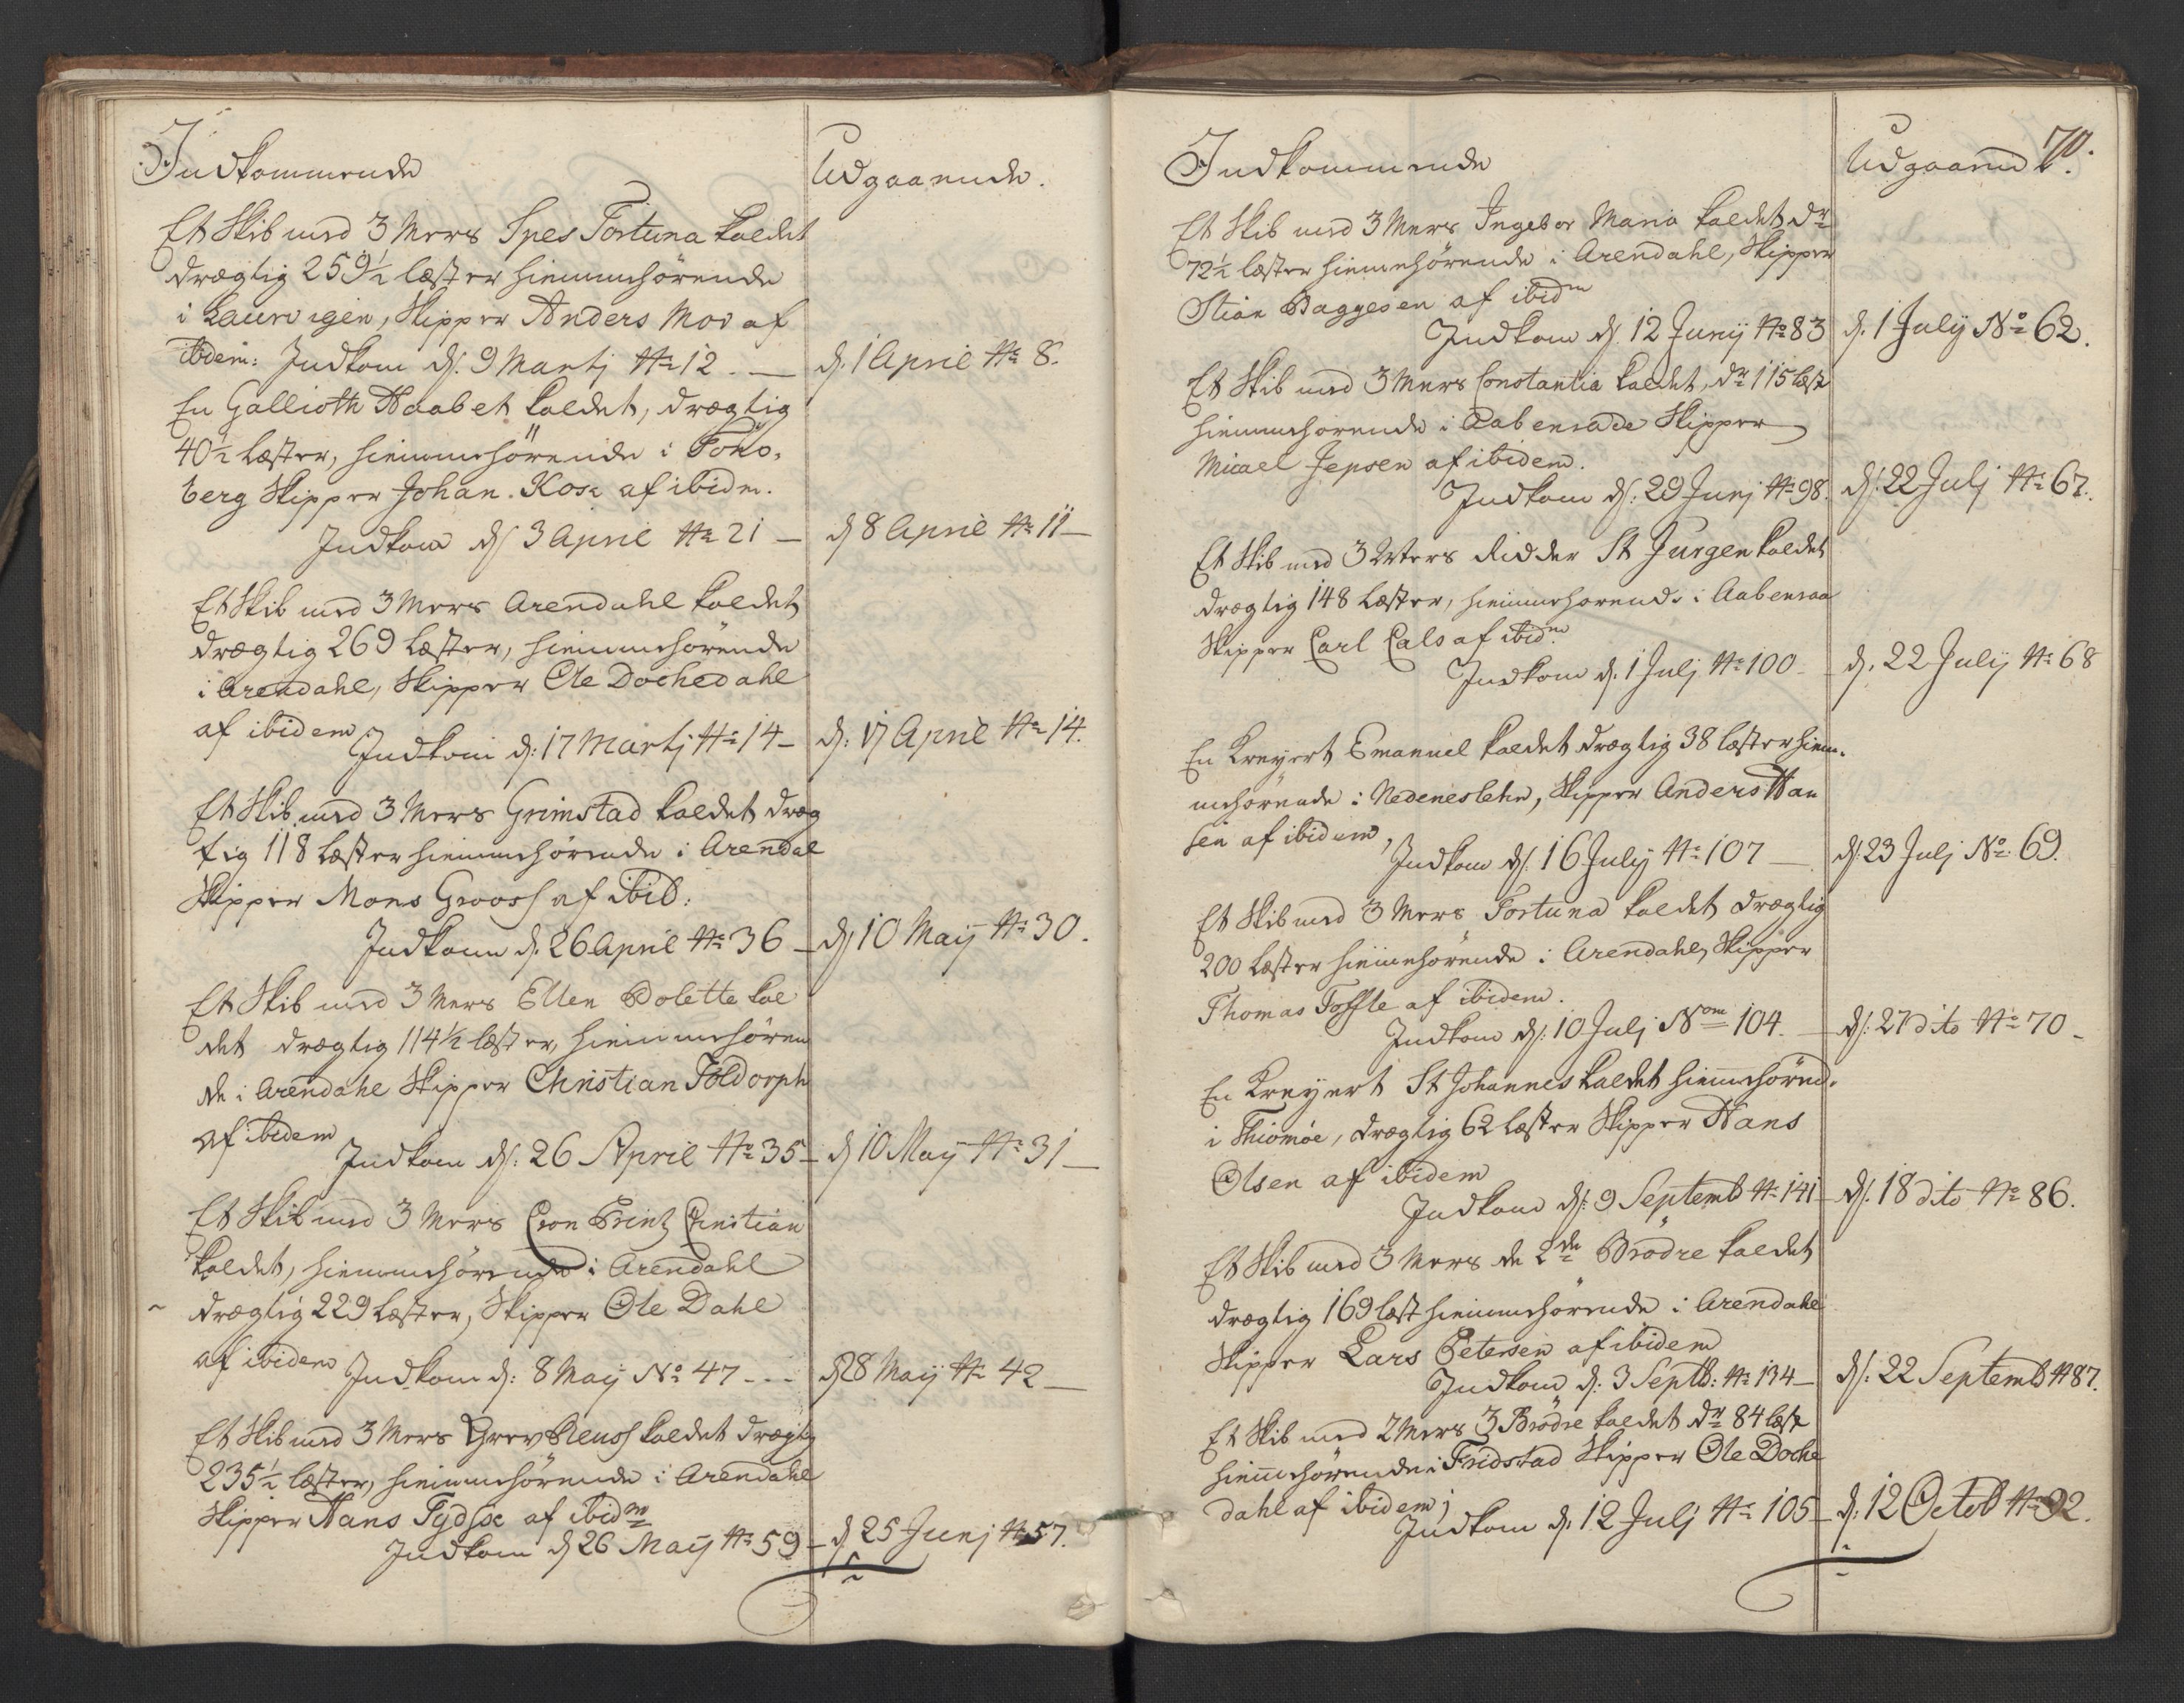 Indkommende
Udgaaende.
Et Skib med 3 Mers Spes Fortuna kaldet
drægtig 259½ læster hiemmehörende
i Laurvigen, Skipper Anders Moe af
ibdem: Indkom d. 9 Martj No 12. —
d. 1 April No 8.
En Gallioth Haabet kaldet, drægtig
40½ læster, hiemmehörende i Töns-
berg Skipper Johan. Kose af ibidm.
Indkom d 3 April No 21 —
d 8 April No 11 —
Et Skib med 3 Mers Arendahl kaldet
drægtig 269 læster, hiemmehörende
i Arendahl, Skipper Ole Dochedahl
af ibidem
Indkom d: 17 Martj No 14 —
d: 17 April No 14.
Et Skib med 3 Mers Grimstad kaldet dræg
tig 118 læster hiemmehörende i Arendal
Skipper Mons Grooss af ibid:
Indkom d. 26 April No 36 —
d 10 Maij No 30.
Et Skib med 3 Mers Ellen Bolette kal
det drægtig 114½ læster, hiemmehören
de i Arendahl Skipper Christian Toldorph
af ibidem
Indkom d: 26 April No 35 —
d 10 Maij No 31 —
Et Skib med 3 Mers Cron Printz Christian
kaldet, hiemmehörende i Arendahl
drægtig 229 læster, Skipper Ole Dahl
af ibidem Indkom d: 8 Maij No 47 - - -
d 28 Maij No 42 —
Et Skib med 3 Mers Grev Reuss kaldet drægtig
235½ læster, hiemmehörende i Arendahl
Skipper Hans Tydsse af ibidm
Indkom d 26 Maij No 59 —
d 25 Junj No 57.
70.
Indkommende
Udgaaend
Et Skib med 3 Mers Ingebor Maria kaldet dr
72½ læster hiemehörende i Arendahl, Skipper
Stian Baggesen af ibidm
Indkom d. 12 Junij No 83
d. 1 Julij No 62.
Et Skib med 3 Mers Constantia kaldet, dr 115 læst
hiemmehörende i Aabenraade Skipper
Micael Jepsen af ibidem.
Indkom d: 29 Junj No 98.
d: 22 Julj No 67.
Et Skib med 3 Mers Ridder St Jurgen kaldet
drægtig 148 læster, hiemmehörende i Aabenraa
Skipper Carl Cals af ibidm
Indkom d. 1 Julj No 100 -
d. 22 Julij No 68
En Kreyert Emanuel kaldet drægtig 38 læster hiem-
mehörende i Nedeneslehn, Skipper Anders Han
sen af ibidem,
Indkom d. 16 Julij No 107 —
d: 23 Julj No 69.
Et Skib med 3 Mers Fortuna kaldet drægtig
200 læster hiemehörende i Arendahl, Skipper
Thomas Toffte af ibidem.
Indkom d: 10 Julj Nom 104. —
d: 27 dito No 70 -
En Kreyert St Johannes kaldet hiemehörend.
i Thiömöe, drægtig 62 læster Skipper Hans
Olsen af ibidem
Indkom d: 9 Septemb No 141 —
d. 18 dito No 86.
Et Skib med 3 Mers de 2de Brödre kaldet
drægtig 169 læst hiemmehörende i Arendahl
Skipper Lars Petersen af ibidem
Indkom d: 3 Septb: No 134 —
d: 22 Septemb No 87.
Et Skib med 2 Mers 3 Brödre kaldet dr 84 læst
hiemehörende i Fridstad Skipper Ole Doche
dahl af ibidem;
Indkom d. 12 Julj No 105 —
d: 12 Octob No 92.